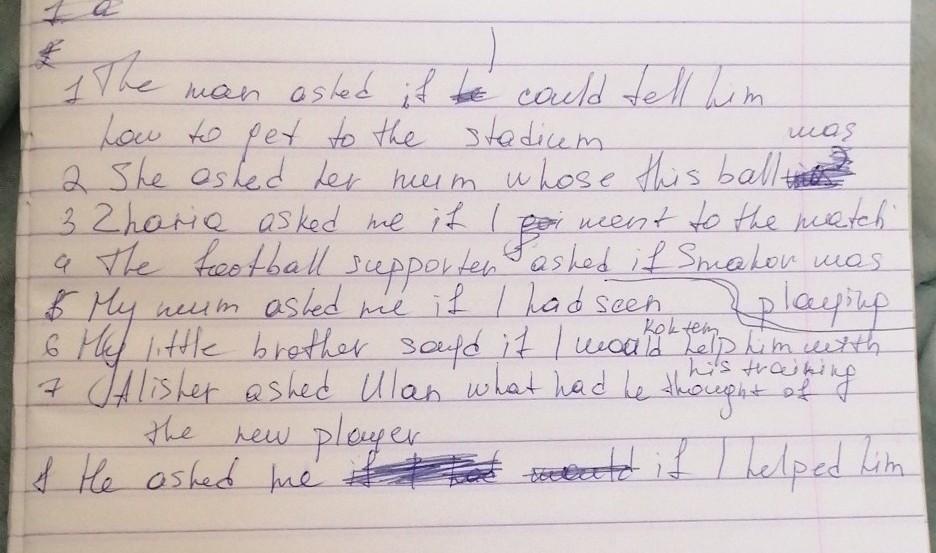 1 a
1 The man asked if I could tell him
how to get to the stadium
2 She asked her mum whose this ball was
3 Zharia asked me if I went to the match
4 The football supporter asked if Smakov was
playing
5 My mum asked me if I had seen
Kok tem
6 My little brother sayd if I would help him with
his training
7 Alisher asked Ulan what had he thought of
the new player
8 He asked me if I helped him